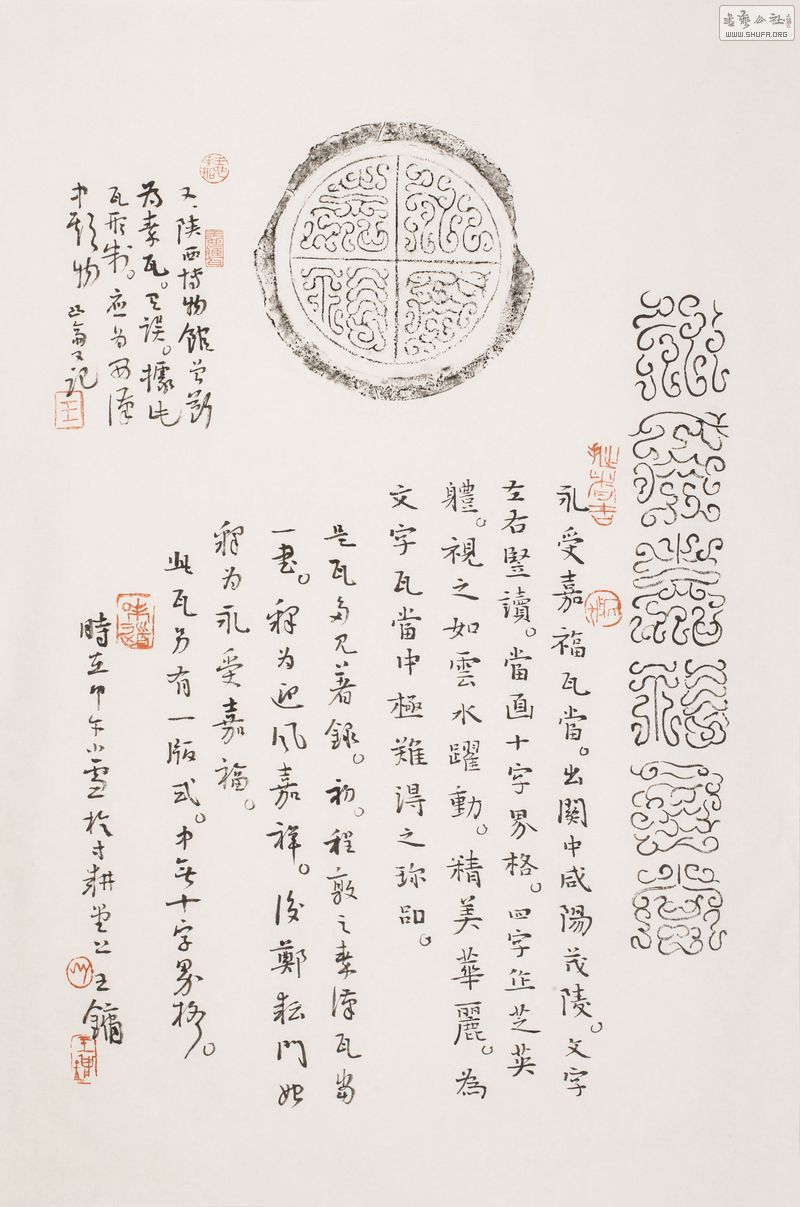 永受嘉福瓦當
永受嘉福瓦當。出關中咸陽茂陵。文字
左右豎讀。當面十字界格。四字作芝英
軆。視之如雲水躍動。精美華麗。為
文字瓦當中極難得之珍品。
是瓦多見著錄。初。程敦之秦漢瓦當
一書。釋為迎風嘉祥。後鄭耘門始
釋為永受嘉福。
此瓦另有一版式。中無十字界格。
時在甲午小雪於寸耕堂上王鏞
又。陝西博物館曾斷
為秦瓦。乃誤。據此
瓦形制。應為西漢
中期物 又記
永受嘉福
書藝公社
WWW.SHUFA.ORG